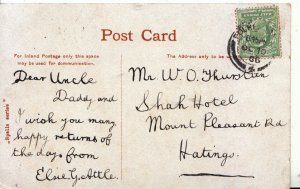 Post Card
For Inland Postage only this space
may be used for communication.
(The address only to be written here.)
"Apollo series"
Dear Uncle
Daddy, and
I wish you many
happy returns of
the day from
Elsie G. Attle.
Mr W. O. Thurston
Shah Hotel
Mount Pleasant Rd
Hatings.